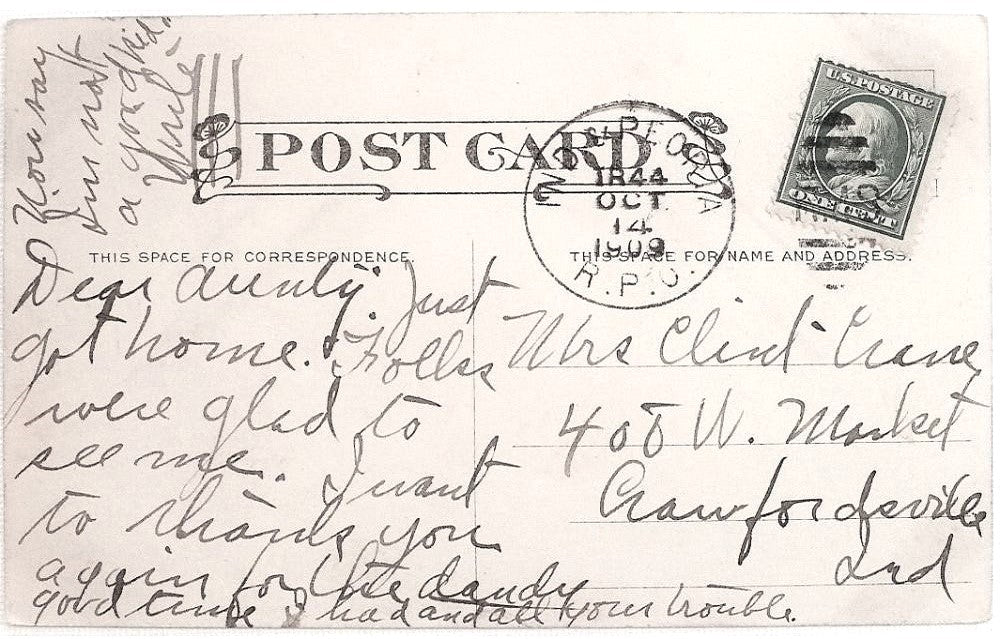 You say
I'm not
a good kid
Uncle
POST CARD
PEORIA
TR 44
OCT.
14
1909
R.P.O.
U.S. POSTAGE
ONE CENT
THIS SPACE FOR CORRESPONDENCE.
THIS SPACE FOR NAME AND ADDRESS.
Dear Aunty: Just
got home. & Folks
were glad to
see me. I want
to thank you
again for the dandy
good time I had and all your trouble.
Mrs Clint Crane
408 W. Market
Crawfordsville
Ind